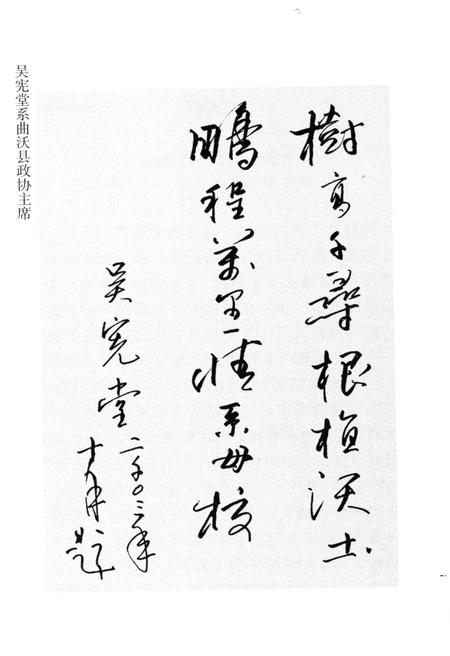 樹高千尋根植沃土
鵬程萬里情系母校
吴宪堂 二〇〇三年
十月题
吴宪堂系曲沃县政协主席